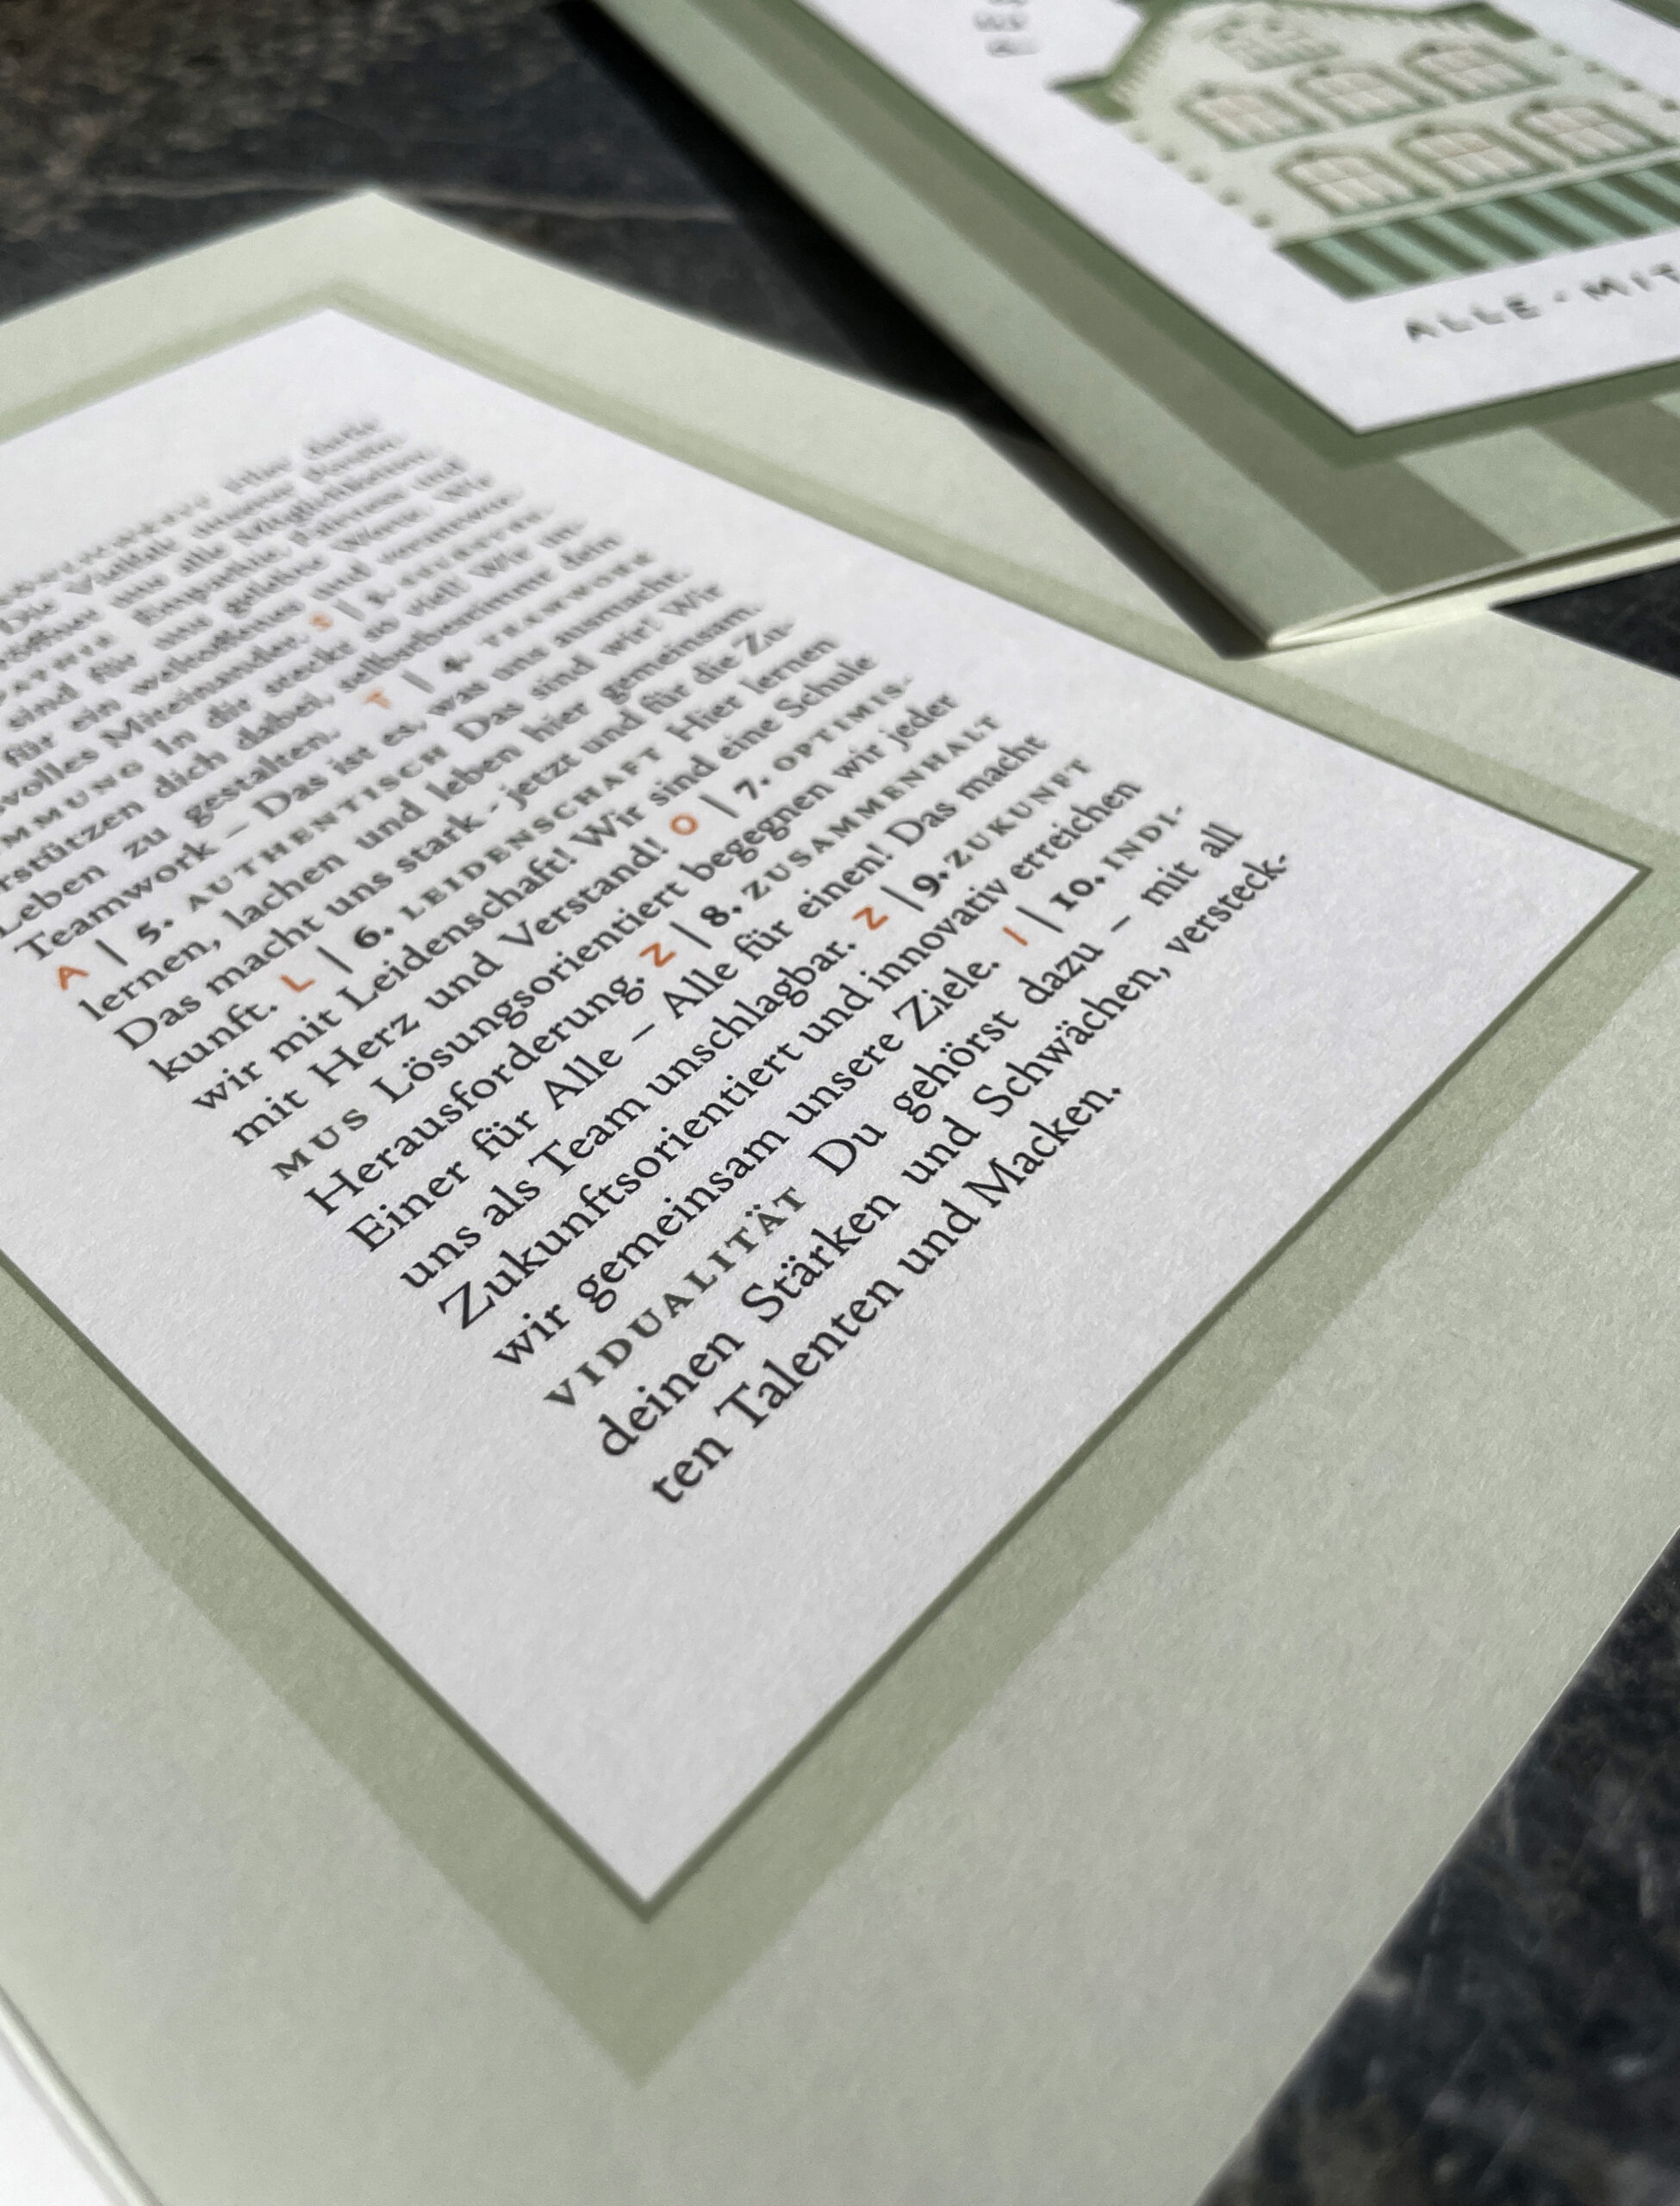 Die Vielfalt unserer
uns alle Möglichkeiten.
Empathie,
sind für uns gelebte Werte. Wir
für ein weltoffenes und verantwor-
volles Miteinander. S | 3.
MMUNG In dir steckt so viel! Wir un-
rstützen dich dabei, selbstbestimmt dein
Leben zu gestalten. T | 4. TEAMWORK
Teamwork – Das ist es, was uns ausmacht.
A | 5. AUTHENTISCH Das sind wir! Wir
lernen, lachen und leben hier gemeinsam.
Das macht uns stark - jetzt und für die Zu-
kunft. L | 6. LEIDENSCHAFT Hier lernen
wir mit Leidenschaft! Wir sind eine Schule
mit Herz und Verstand! O | 7. OPTIMIS-
MUS Lösungsorientiert begegnen wir jeder
Herausforderung. Z | 8. ZUSAMMENHALT
Einer für Alle – Alle für einen! Das macht
uns als Team unschlagbar. Z | 9. ZUKUNFT
Zukunftsorientiert und innovativ erreichen
wir gemeinsam unsere Ziele. I | 10. INDI-
VIDUALITÄT Du gehörst dazu – mit all
deinen Stärken und Schwächen, versteck-
ten Talenten und Macken.
ALLE · MIT